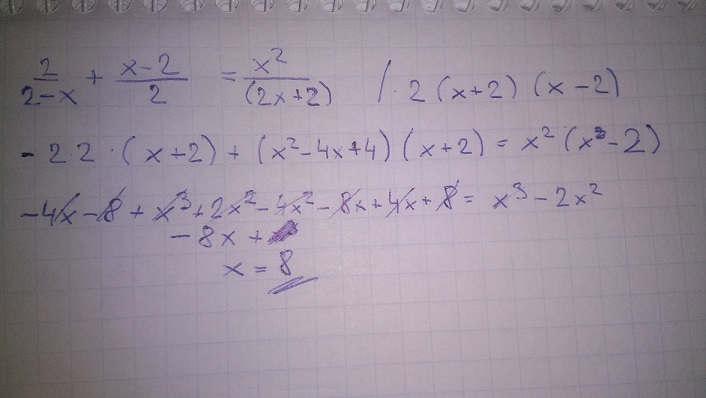 2/(2-x) + (x-2)/2 = x²/(2x+2) /· 2(x+2)(x-2)
-2·2·(x+2) + (x²-4x+4)(x+2) = x²(x-2)
-4x-8+x³+2x²-4x²-8x+4x+8 = x³-2x²
-8x+
x = 8